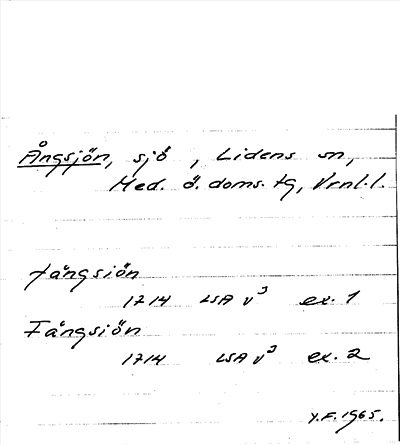 Ångsjön, sjö , Lidens sn,
Med. ö. doms. tg, Vrnl. l.
Jångsiön
1714 LSA V³ ex. 1
Fångsiön
1714 LSA V³ ex. 2
Y.F. 1965.